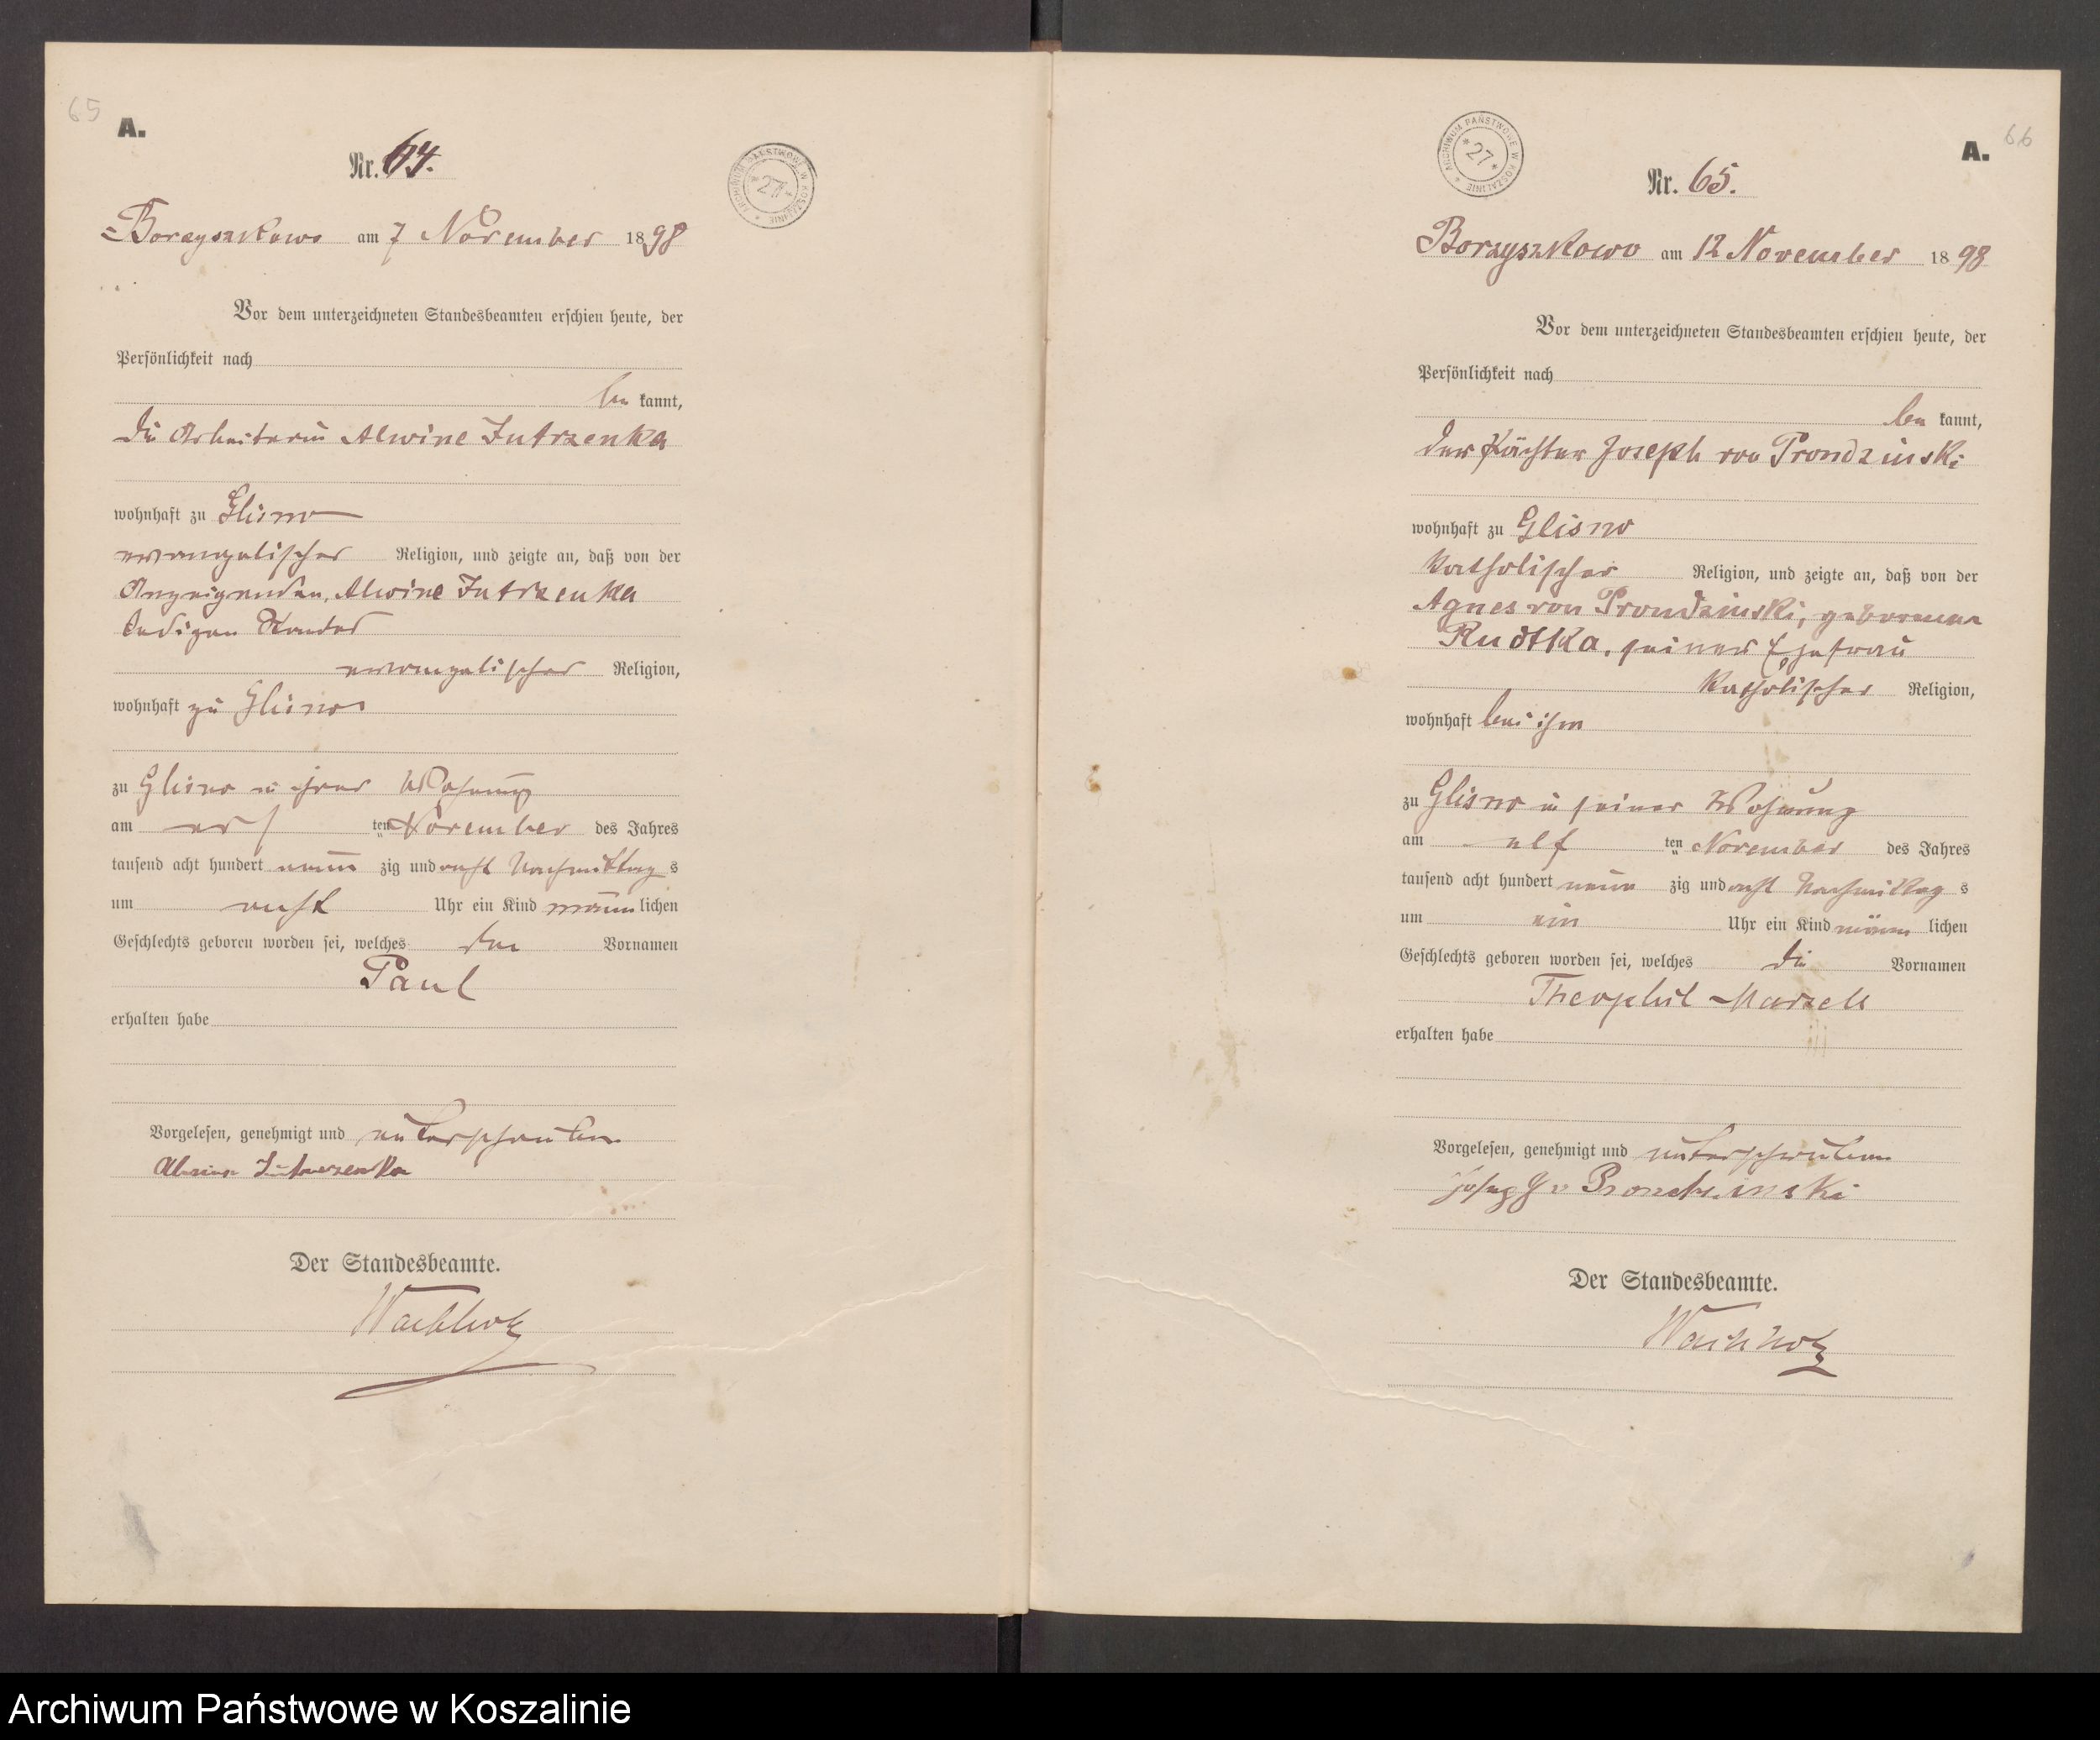 65
A.
Nr. 64.
Borzyszkowo am 7 November 1898
Vor dem unterzeichneten Standesbeamten erschien heute, der
Persönlichkeit nach
be kannt,
die Arbeiterin Alwine Jutrzenka
wohnhaft zu Glisno
evangelischer Religion, und zeigte an, daß von der
Anzeigenden, Alwine Jutrzenka
ledigen Standes
evangelischer Religion,
wohnhaft zu Glisno
zu Glisno in ihrer Wohnung
am ten November des Jahres
tausend acht hundert neun zig und acht Nachmittag s
um acht Uhr ein Kind männ lichen
Geschlechts geboren worden sei, welches den Vornamen
Paul
erhalten habe
Vorgelesen, genehmigt und unterschrieben
Alwine Jutrzenka
Der Standesbeamte.
Wachholz
ARCHIWUM PAŃSTWOWE W KOSZALINIE
* 27 *
66
A.
ARCHIWUM PAŃSTWOWE W KOSZALINIE
* 27 *
Nr. 65.
Borzyszkowo am 12 November 1898
Vor dem unterzeichneten Standesbeamten erschien heute, der
Persönlichkeit nach
be kannt,
der Pächter Joseph von Prondzinski
wohnhaft zu Glisno
katholischer Religion, und zeigte an, daß von der
Agnes von Prondzinski, geborenen
Rudtka, seiner Ehefrau
katholischer Religion,
wohnhaft bei ihm
zu Glisno in seiner Wohnung
am elf ten November des Jahres
tausend acht hundert neun zig und acht Nachmittag s
um ein Uhr ein Kind männ lichen
Geschlechts geboren worden sei, welches die Vornamen
Theophil Marzell
erhalten habe
Vorgelesen, genehmigt und unterschrieben
Joseph v Prondzinski
Der Standesbeamte.
Wachholz
Archiwum Państwowe w Koszalinie